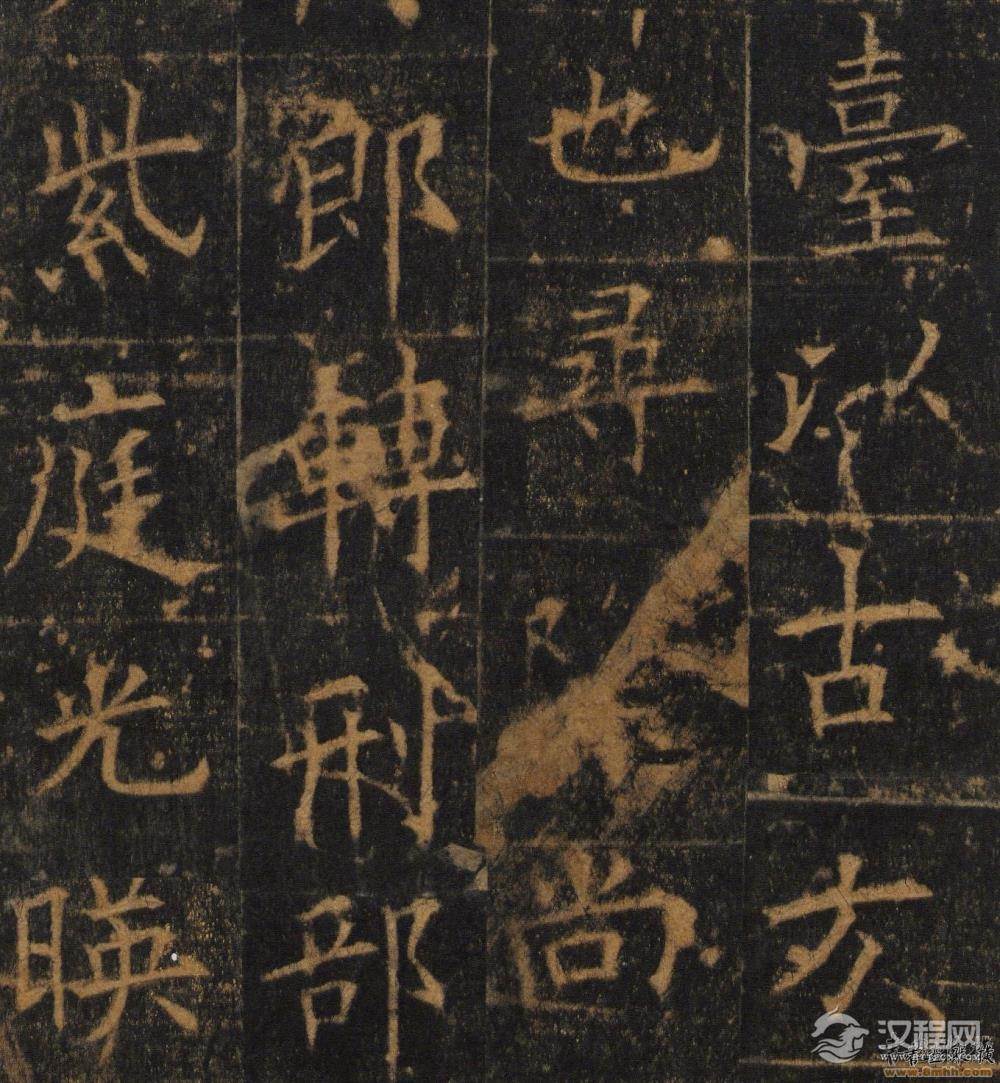 臺以古
也尋尚
郎轉刑部
紫庭光暎
汉程网
www.8mhh.com